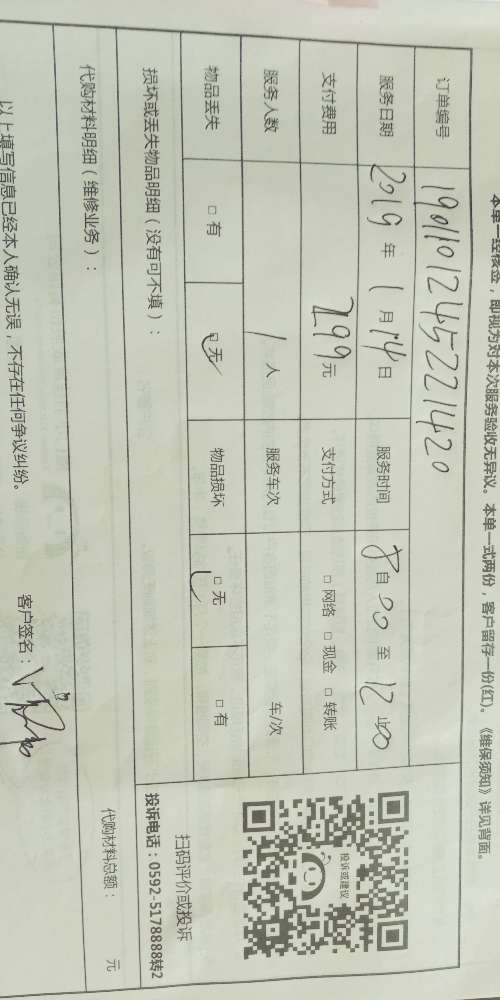 本单一经核签，即视为对本次服务验收无异议。本单一式两份，客户留存一份(红)。《维保须知》详见背面。
订单编号 19011012452221420
服务日期 2019 年 1 月 14 日 服务时间 8 自 00 至 12 止 00
支付费用 299 元 支付方式 □ 网络 □ 现金 □ 转账
服务人数 1 人 服务车次 车/次
物品丢失 □ 有 □ 无 物品损坏 □ 无 □ 有
损坏或丢失物品明细（没有可不填）：
代购材料明细（维修业务）：
代购材料总额： 元
投诉或建议
扫码评价或投诉
投诉电话：0592-5178888转2
以上填写信息已经本人确认无误，不存在任何争议纠纷。
客户签名：